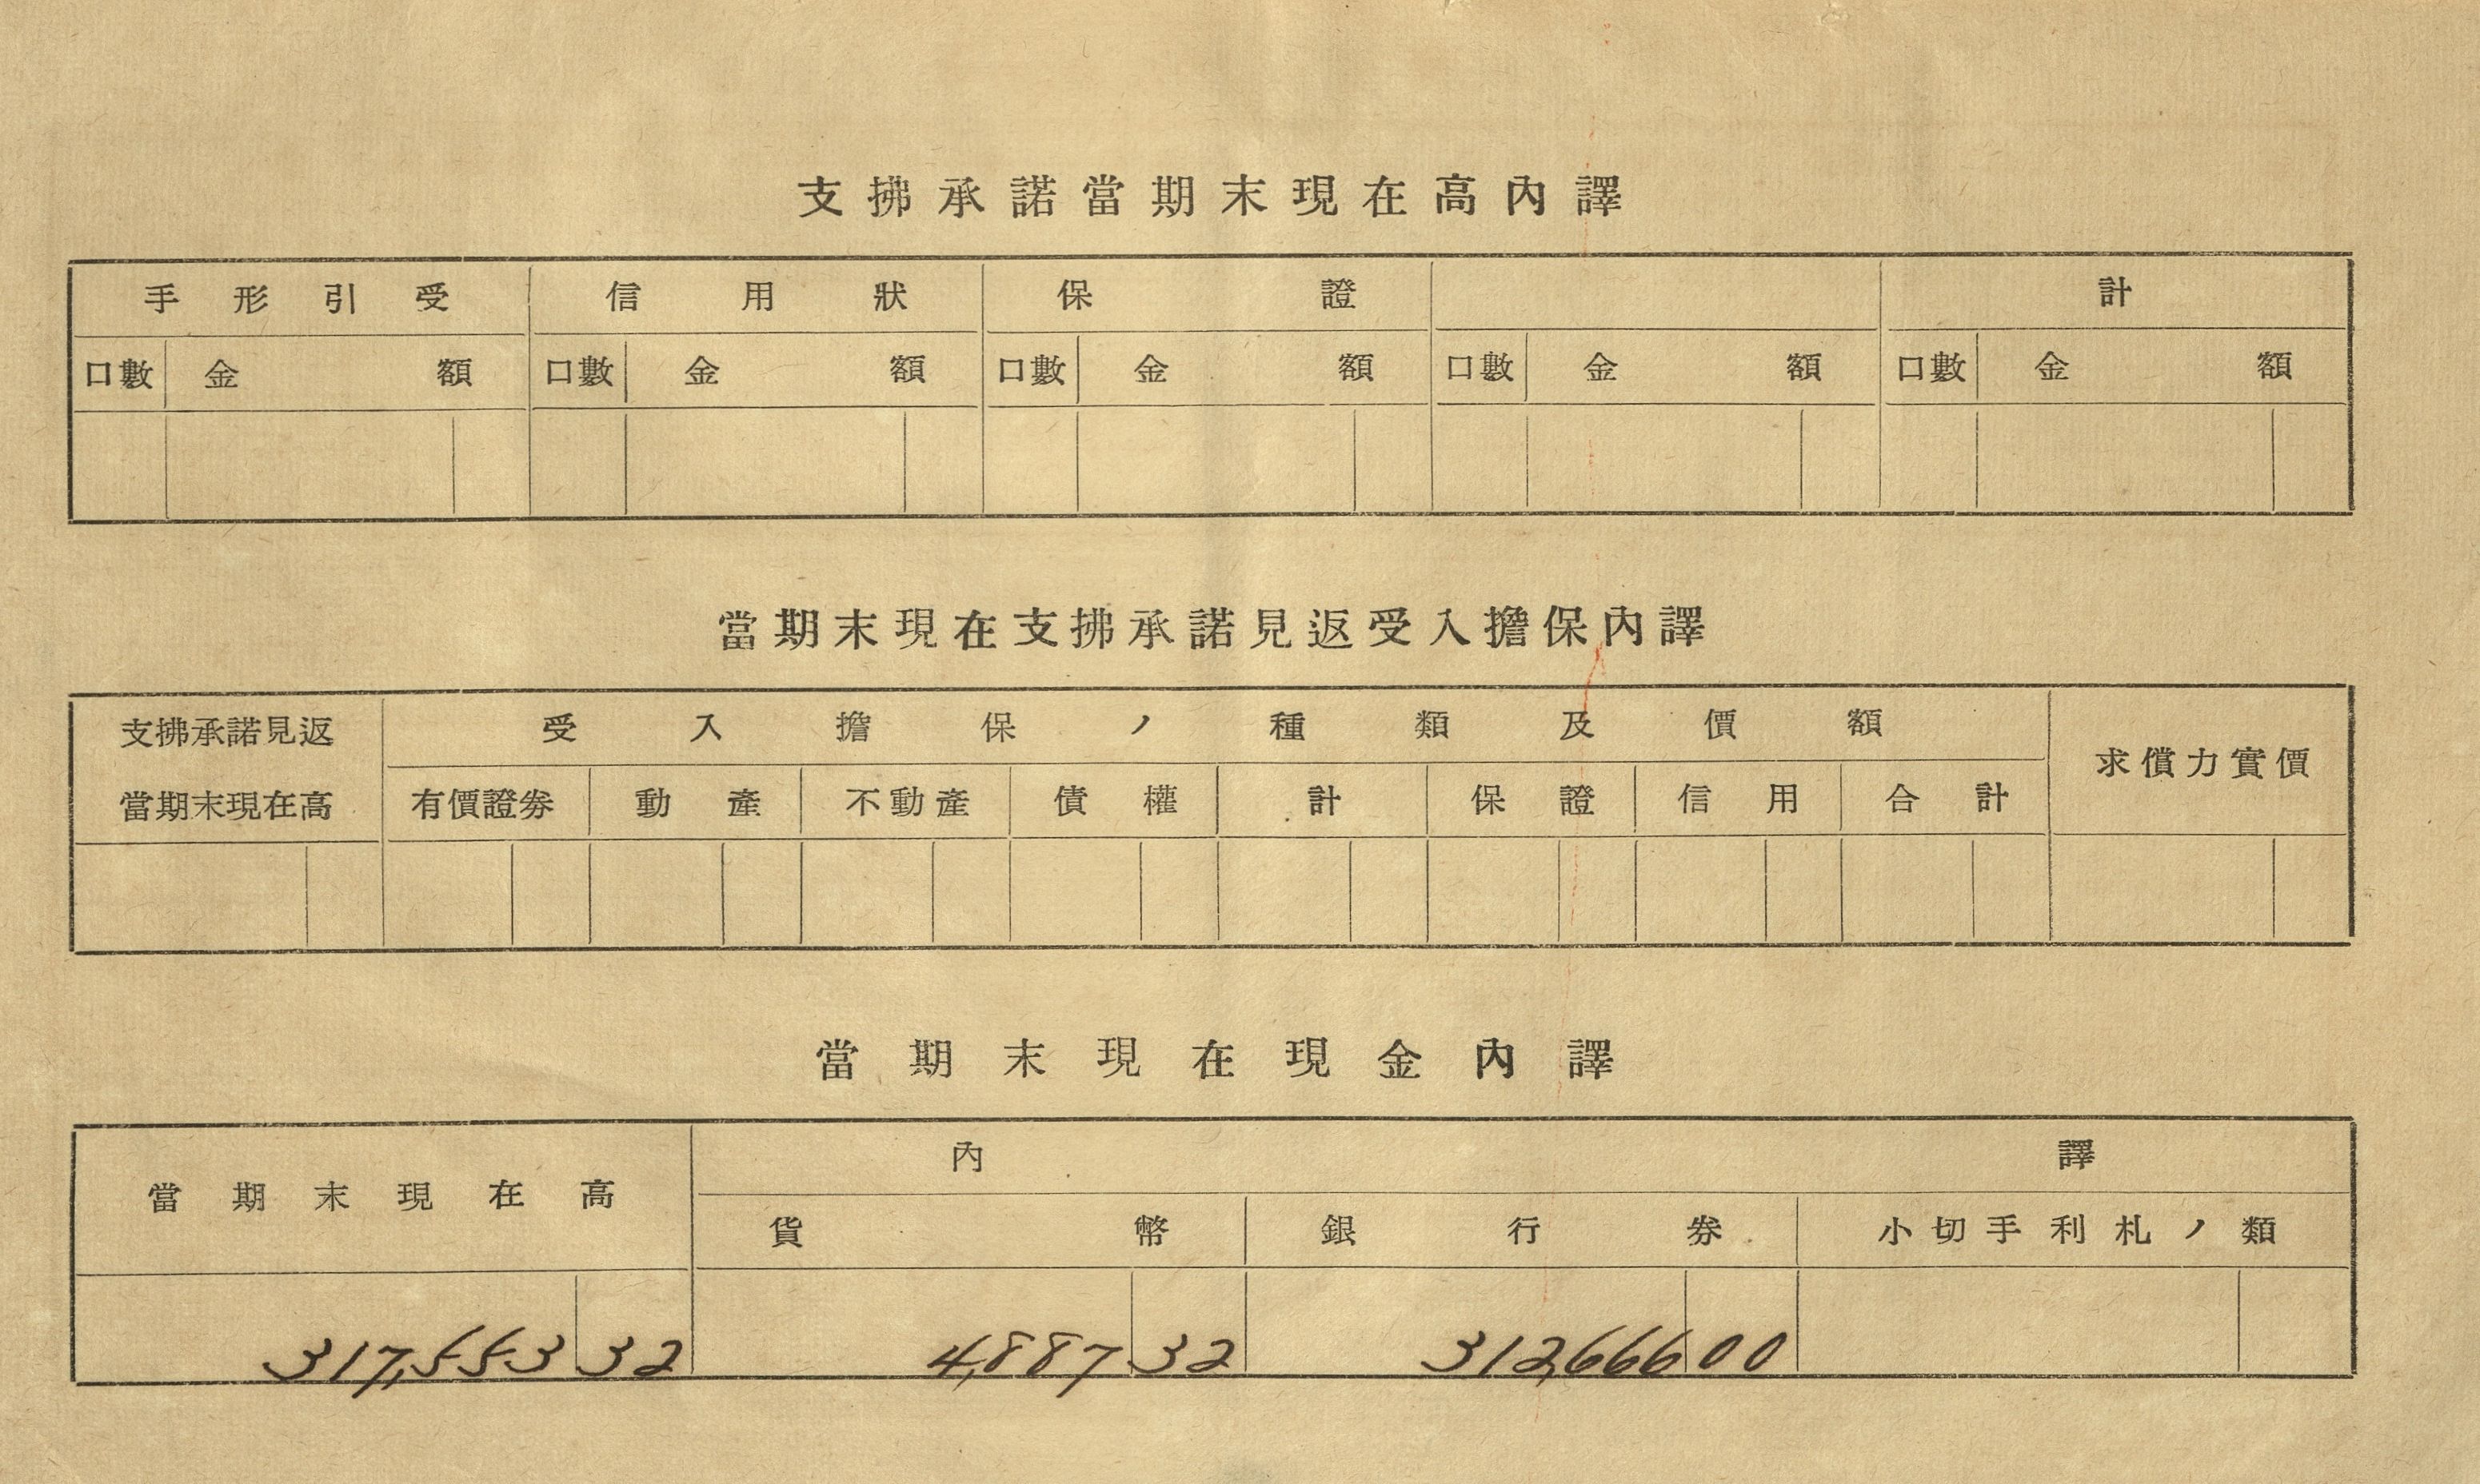 支拂承諾當期末現在高內譯
手形引受 信用狀 保證 計
口數 金額 口數 金額 口數 金額 口數 金額 口數 金額
當期末現在支拂承諾見返受入擔保內譯
支拂承諾見返當期末現在高 受入擔保ノ種類及價額 求償力實價
有價證劵 動產 不動產 債權 計 保證 信用 合計
當期末現在現金內譯
當期末現在高 內譯
貨幣 銀行劵 小切手利札ノ類
317,553 32 4,887 32 312,666 00